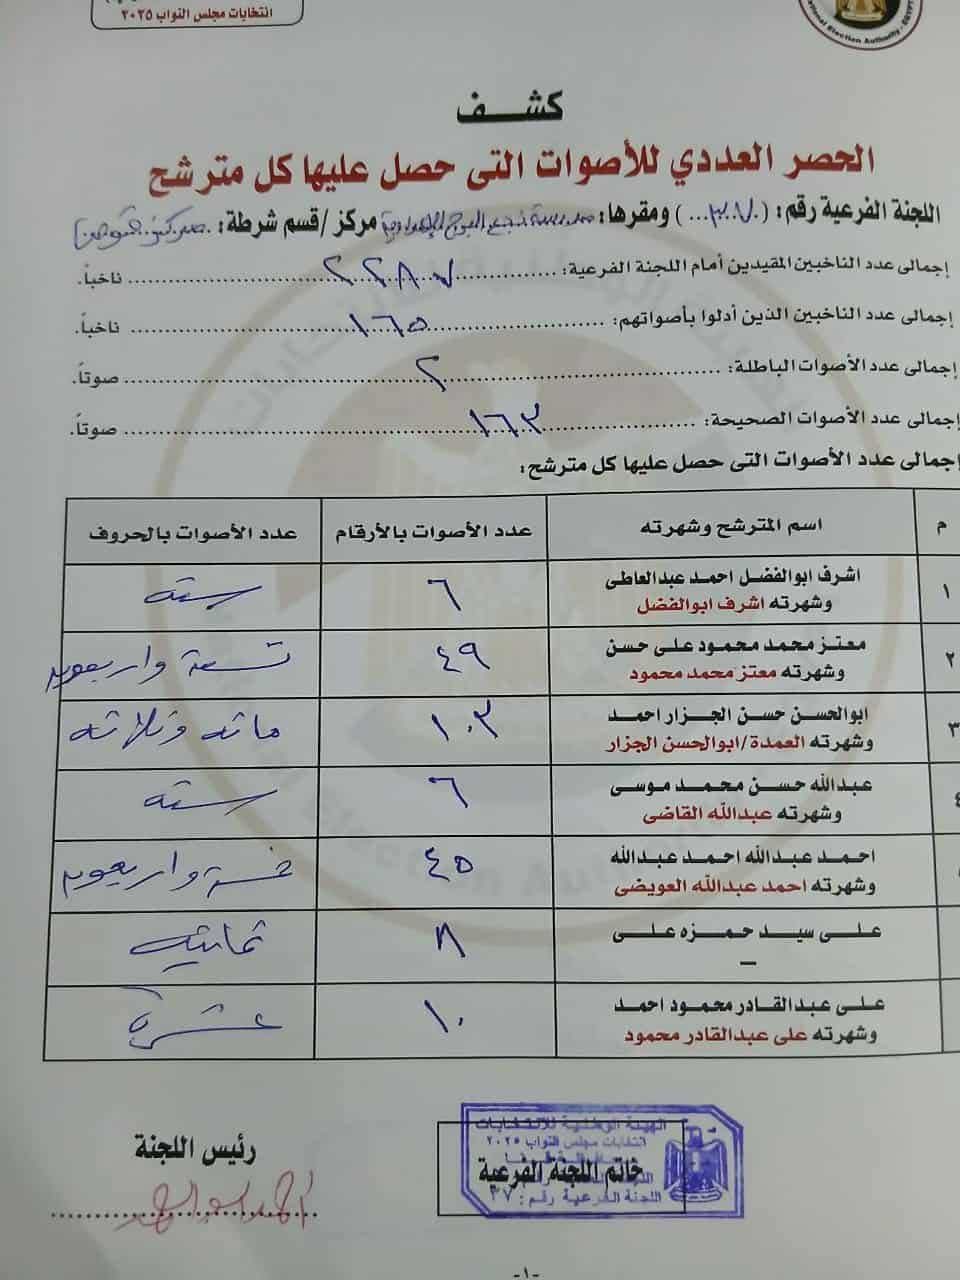 انتخابات مجلس النواب ٢٠٢٥
National Election Authority - EGYPT
كشف
الحصر العددي للأصوات التى حصل عليها كل مترشح
اللجنة الفرعية رقم: (...٣٧) ومقرها: مدرسة نجع البرج الإعدادية مركز /قسم شرطة:
إجمالى عدد الناخبين المقيدين أمام اللجنة الفرعية: ٢٢٨٧ ناخباً.
إجمالى عدد الناخبين الذين أدلوا بأصواتهم: ١٦٥ ناخباً.
إجمالى عدد الأصوات الباطلة: ٢ صوتاً.
إجمالى عدد الأصوات الصحيحة: ١٦٣ صوتاً.
إجمالى عدد الأصوات التى حصل عليها كل مترشح:
م اسم المترشح وشهرته عدد الأصوات بالأرقام عدد الأصوات بالحروف
١ اشرف ابوالفضل احمد عبدالعاطى ٦ ستة
وشهرته اشرف ابوالفضل
٢ معتز محمد محمود على حسن ٤٩ تسعة واربعون
وشهرته معتز محمد محمود
٣ ابوالحسن حسن الجزار احمد ١٠٣ مائه وثلاثه
وشهرته العمدة/ابوالحسن الجزار
٤ عبدالله حسن محمد موسى ٦ سته
وشهرته عبدالله القاضى
احمد عبدالله احمد عبدالله ٤٥ خمسة واربعون
وشهرته احمد عبدالله العويضى
على سيد حمزه على ٨ ثمانيه
–
على عبدالقادر محمود احمد ١٠ عشرة
وشهرته على عبدالقادر محمود
رئيس اللجنة
خاتم اللجنة الفرعية
الهيئة الوطنية للانتخابات
انتخابات مجلس النواب ٢٠٢٥
اللجنة الفرعية رقم: ٣٧
-١-